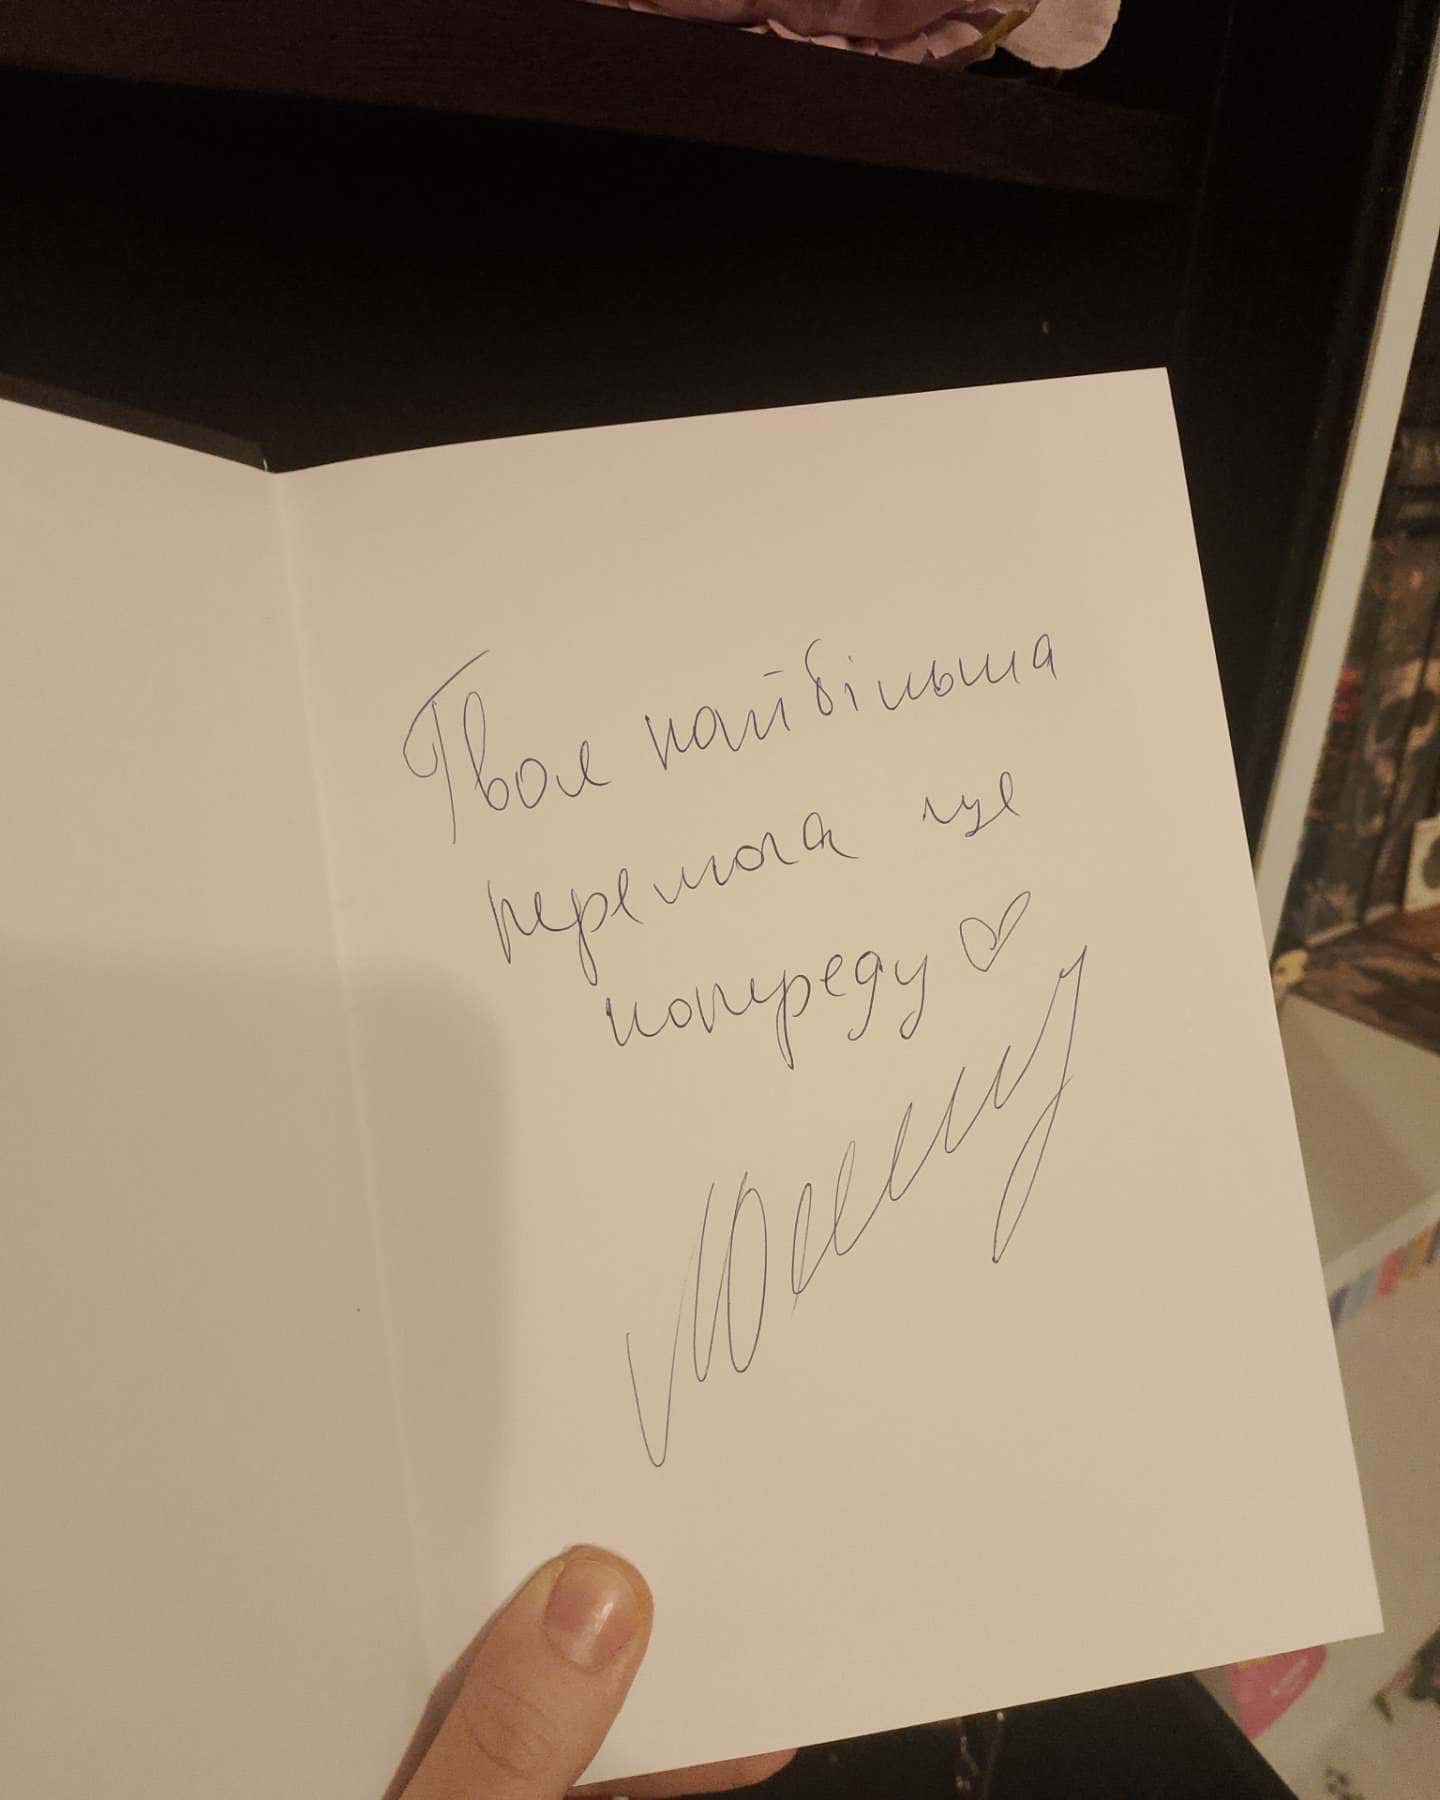 Твоя найбільша
перемога ще
попереду ♡